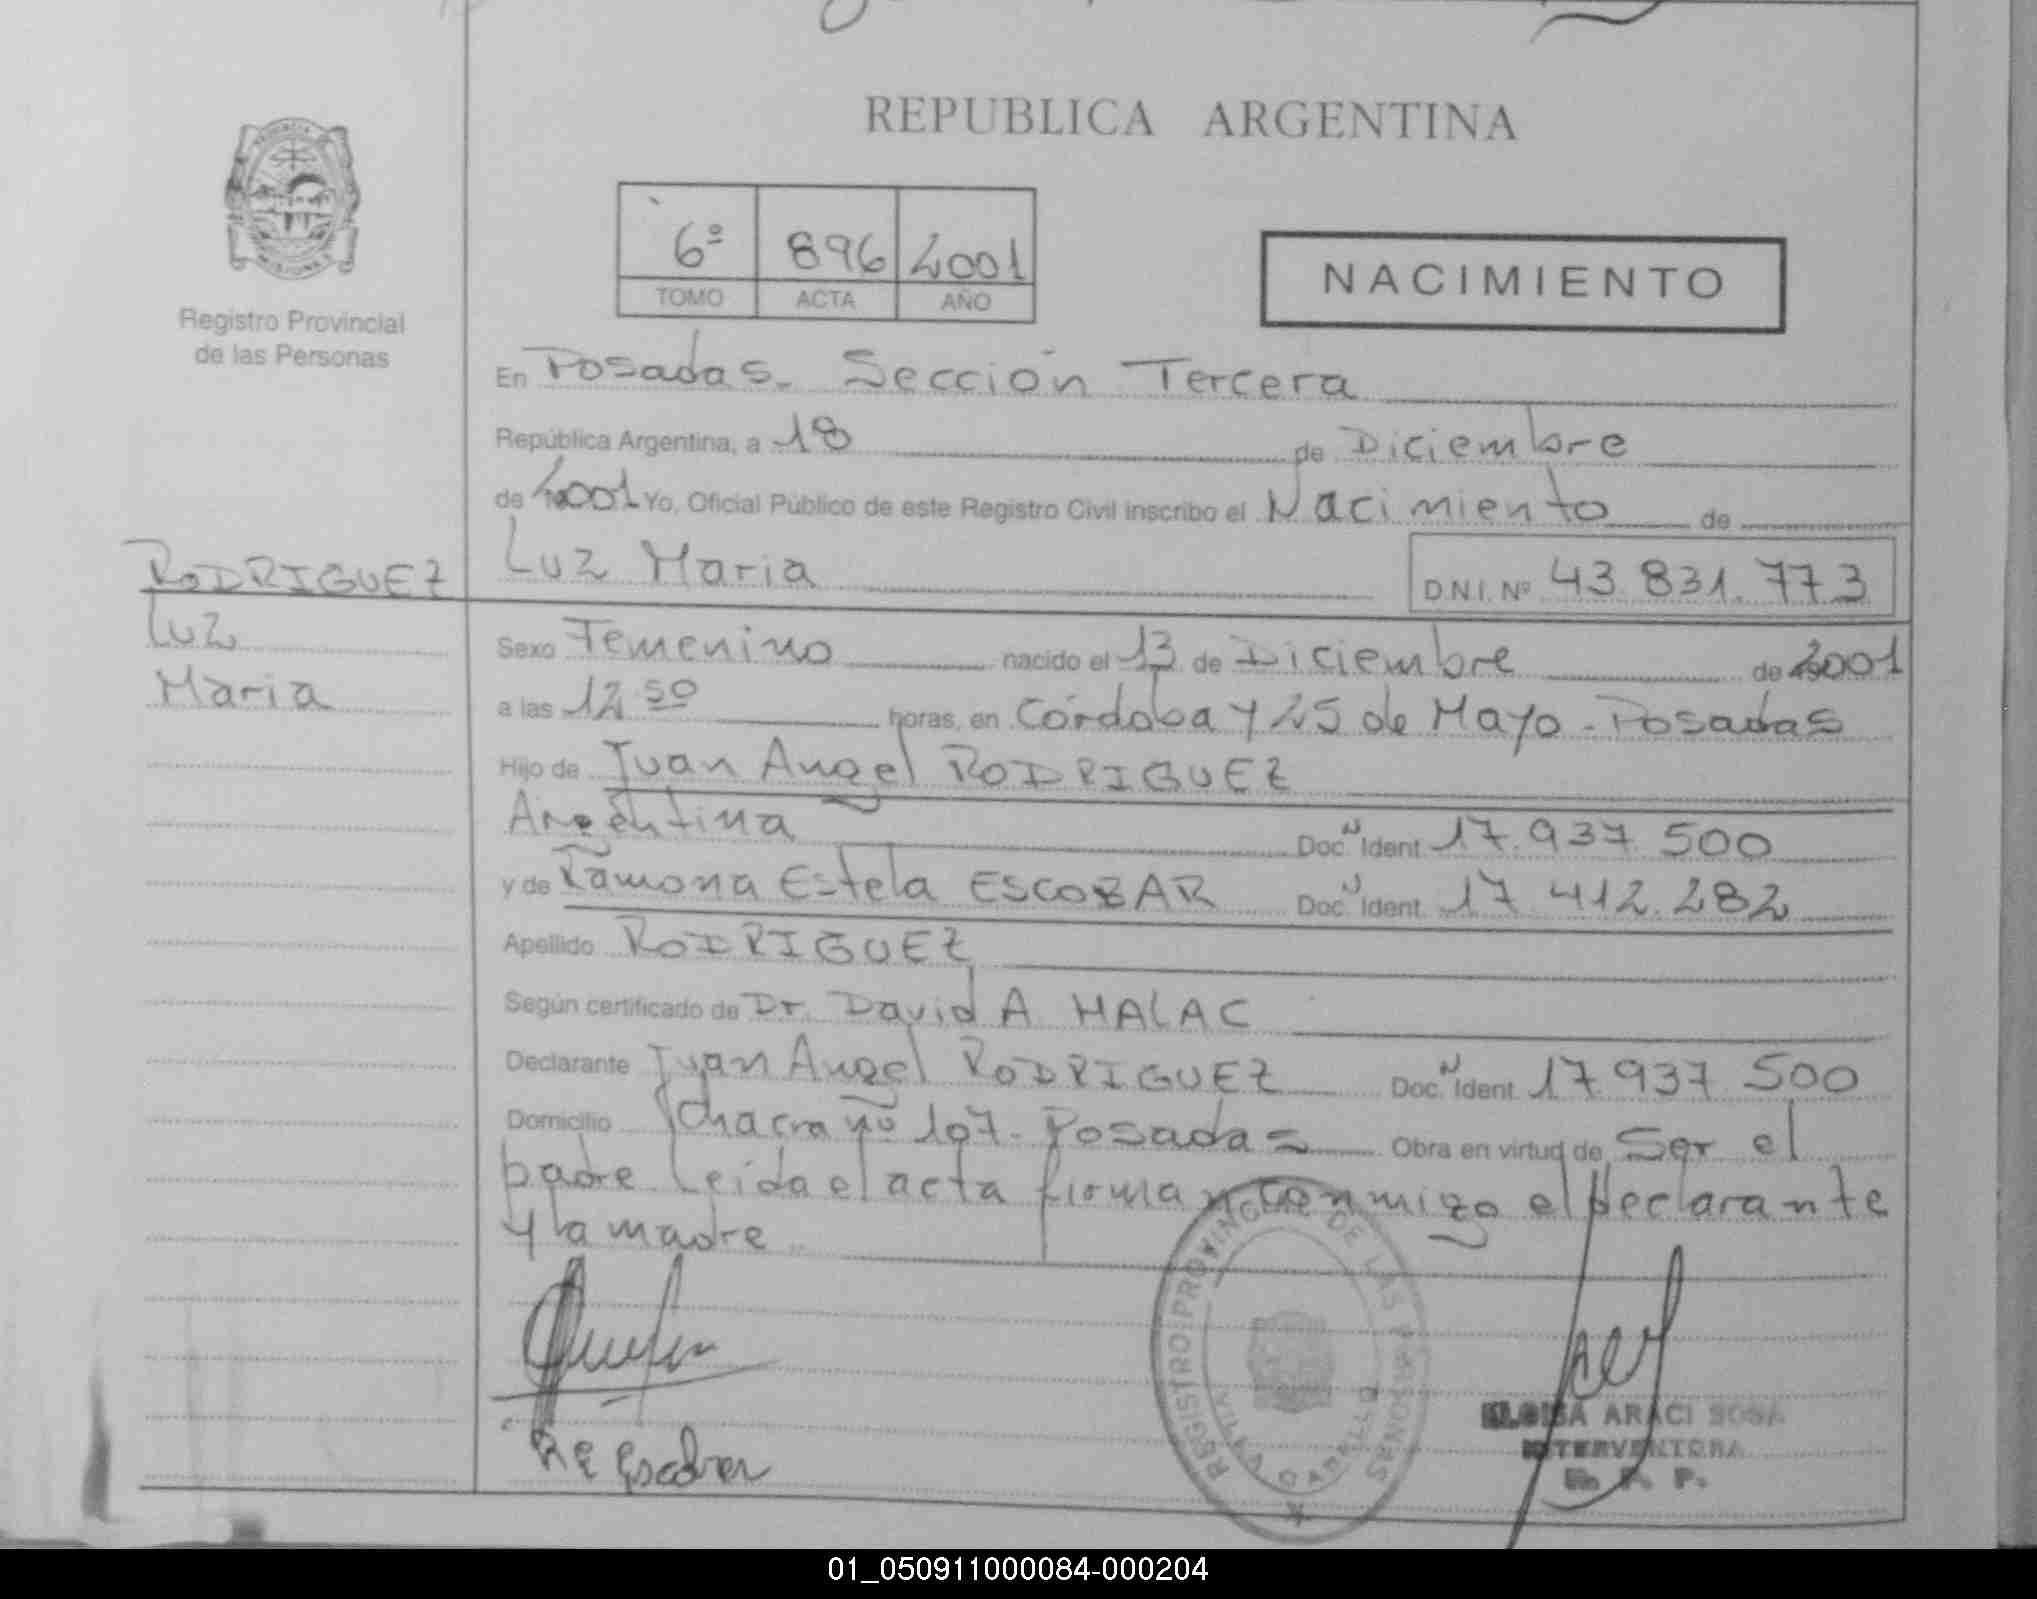 REPUBLICA ARGENTINA
PROVINCIA
MISIONES
Registro Provincial
de las Personas
6º 896 2001
TOMO ACTA AÑO
NACIMIENTO
En Posadas. Sección Tercera
República Argentina, a 18 de Diciembre
de 2001 Yo, Oficial Público de este Registro Civil inscribo el Nacimiento de
RODRIGUEZ
Luz
Maria
Luz Maria D.N.I. Nº 43 831.773
Sexo Femenino nacido el 13 de Diciembre de 2001
a las 12 50 horas, en Córdoba y 25 de Mayo - Posadas
Hijo de Juan Angel RODRIGUEZ
Argentina Doc. N Ident. 17.937.500
y de Ramona Estela ESCOBAR Doc. N Ident. 17 412.282
Apellido RODRIGUEZ
Según certificado de Dr. David A MALAC
Declarante Juan Angel RODRIGUEZ Doc. N Ident. 17.937.500
Domicilio Chacra nº 107. Posadas Obra en virtud de Ser el
padre Leida el acta firman conmigo el Declarante
y la madre
R E Escobar
REGISTRO PROVINCIAL DE LAS PERSONAS
ELOISA ARACI SOSA
INTERVENTORA
R. P. P.
01_050911000084-000204